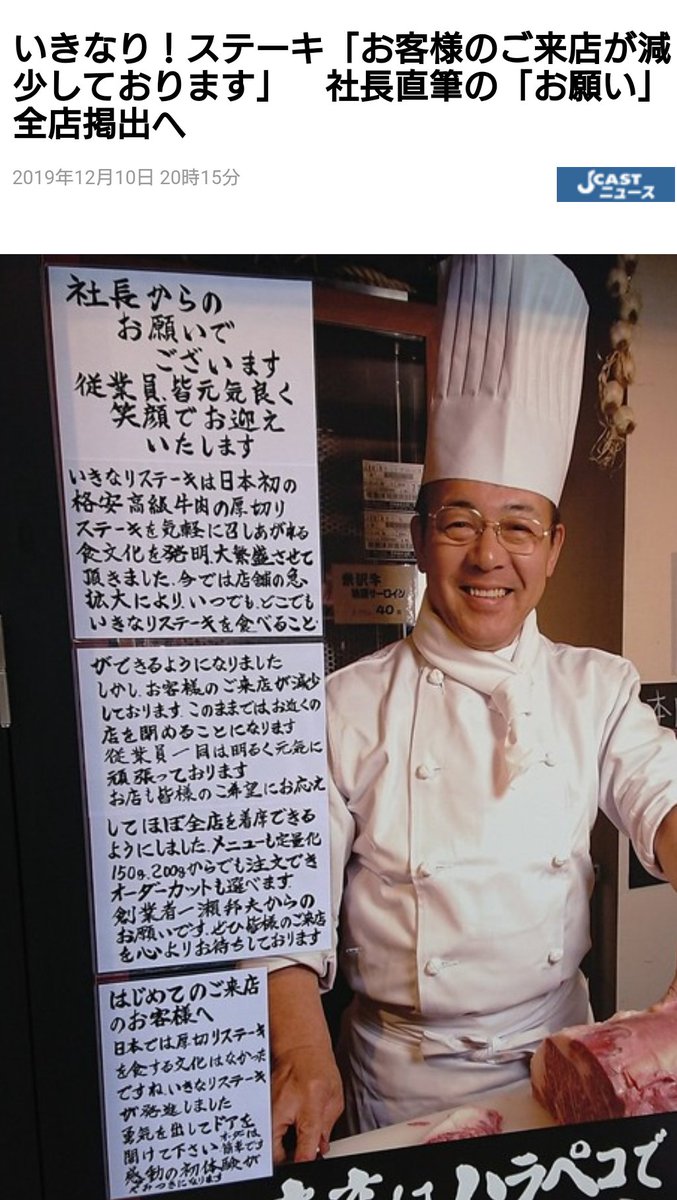 いきなり！ステーキ「お客様のご来店が減
少しております」　社長直筆の「お願い」
全店掲出へ
2019年12月10日 20時15分
J CAST
ニュース
社長からの
お願いで
ございます
従業員、皆元気良く
笑顔でお迎え
いたします
いきなりステーキは日本初の
格安高級牛肉の厚切り
ステーキを気軽に召しあがれる
食文化を発明、大繁盛させて
頂きました。今では店舗の急
拡大により、いつでも、どこでも
いきなりステーキを食べること
ができるようになりました
しかし、お客様のご来店が減少
しております。このままではお近くの
店を閉めることになります
従業員一同は明るく元気に
頑張っております
お店も皆様のご希望にお応え
してほぼ全店を着席できる
ようにしました。メニューも定量化
150g、200gからでも注文でき
オーダーカットも選べます
創業者一瀬邦夫からの
お願いです。ぜひ皆様のご来店
を心よりお待ちしております
はじめてのご来店
のお客様へ
日本では厚切りステーキ
を食する文化はなかった
ですね。いきなりステーキ
が発進しました
勇気を出してドアを
開けて下さい オーダーは簡単です
感動の初体験が
やみつきになります
米沢牛
40
本
ハラペコで